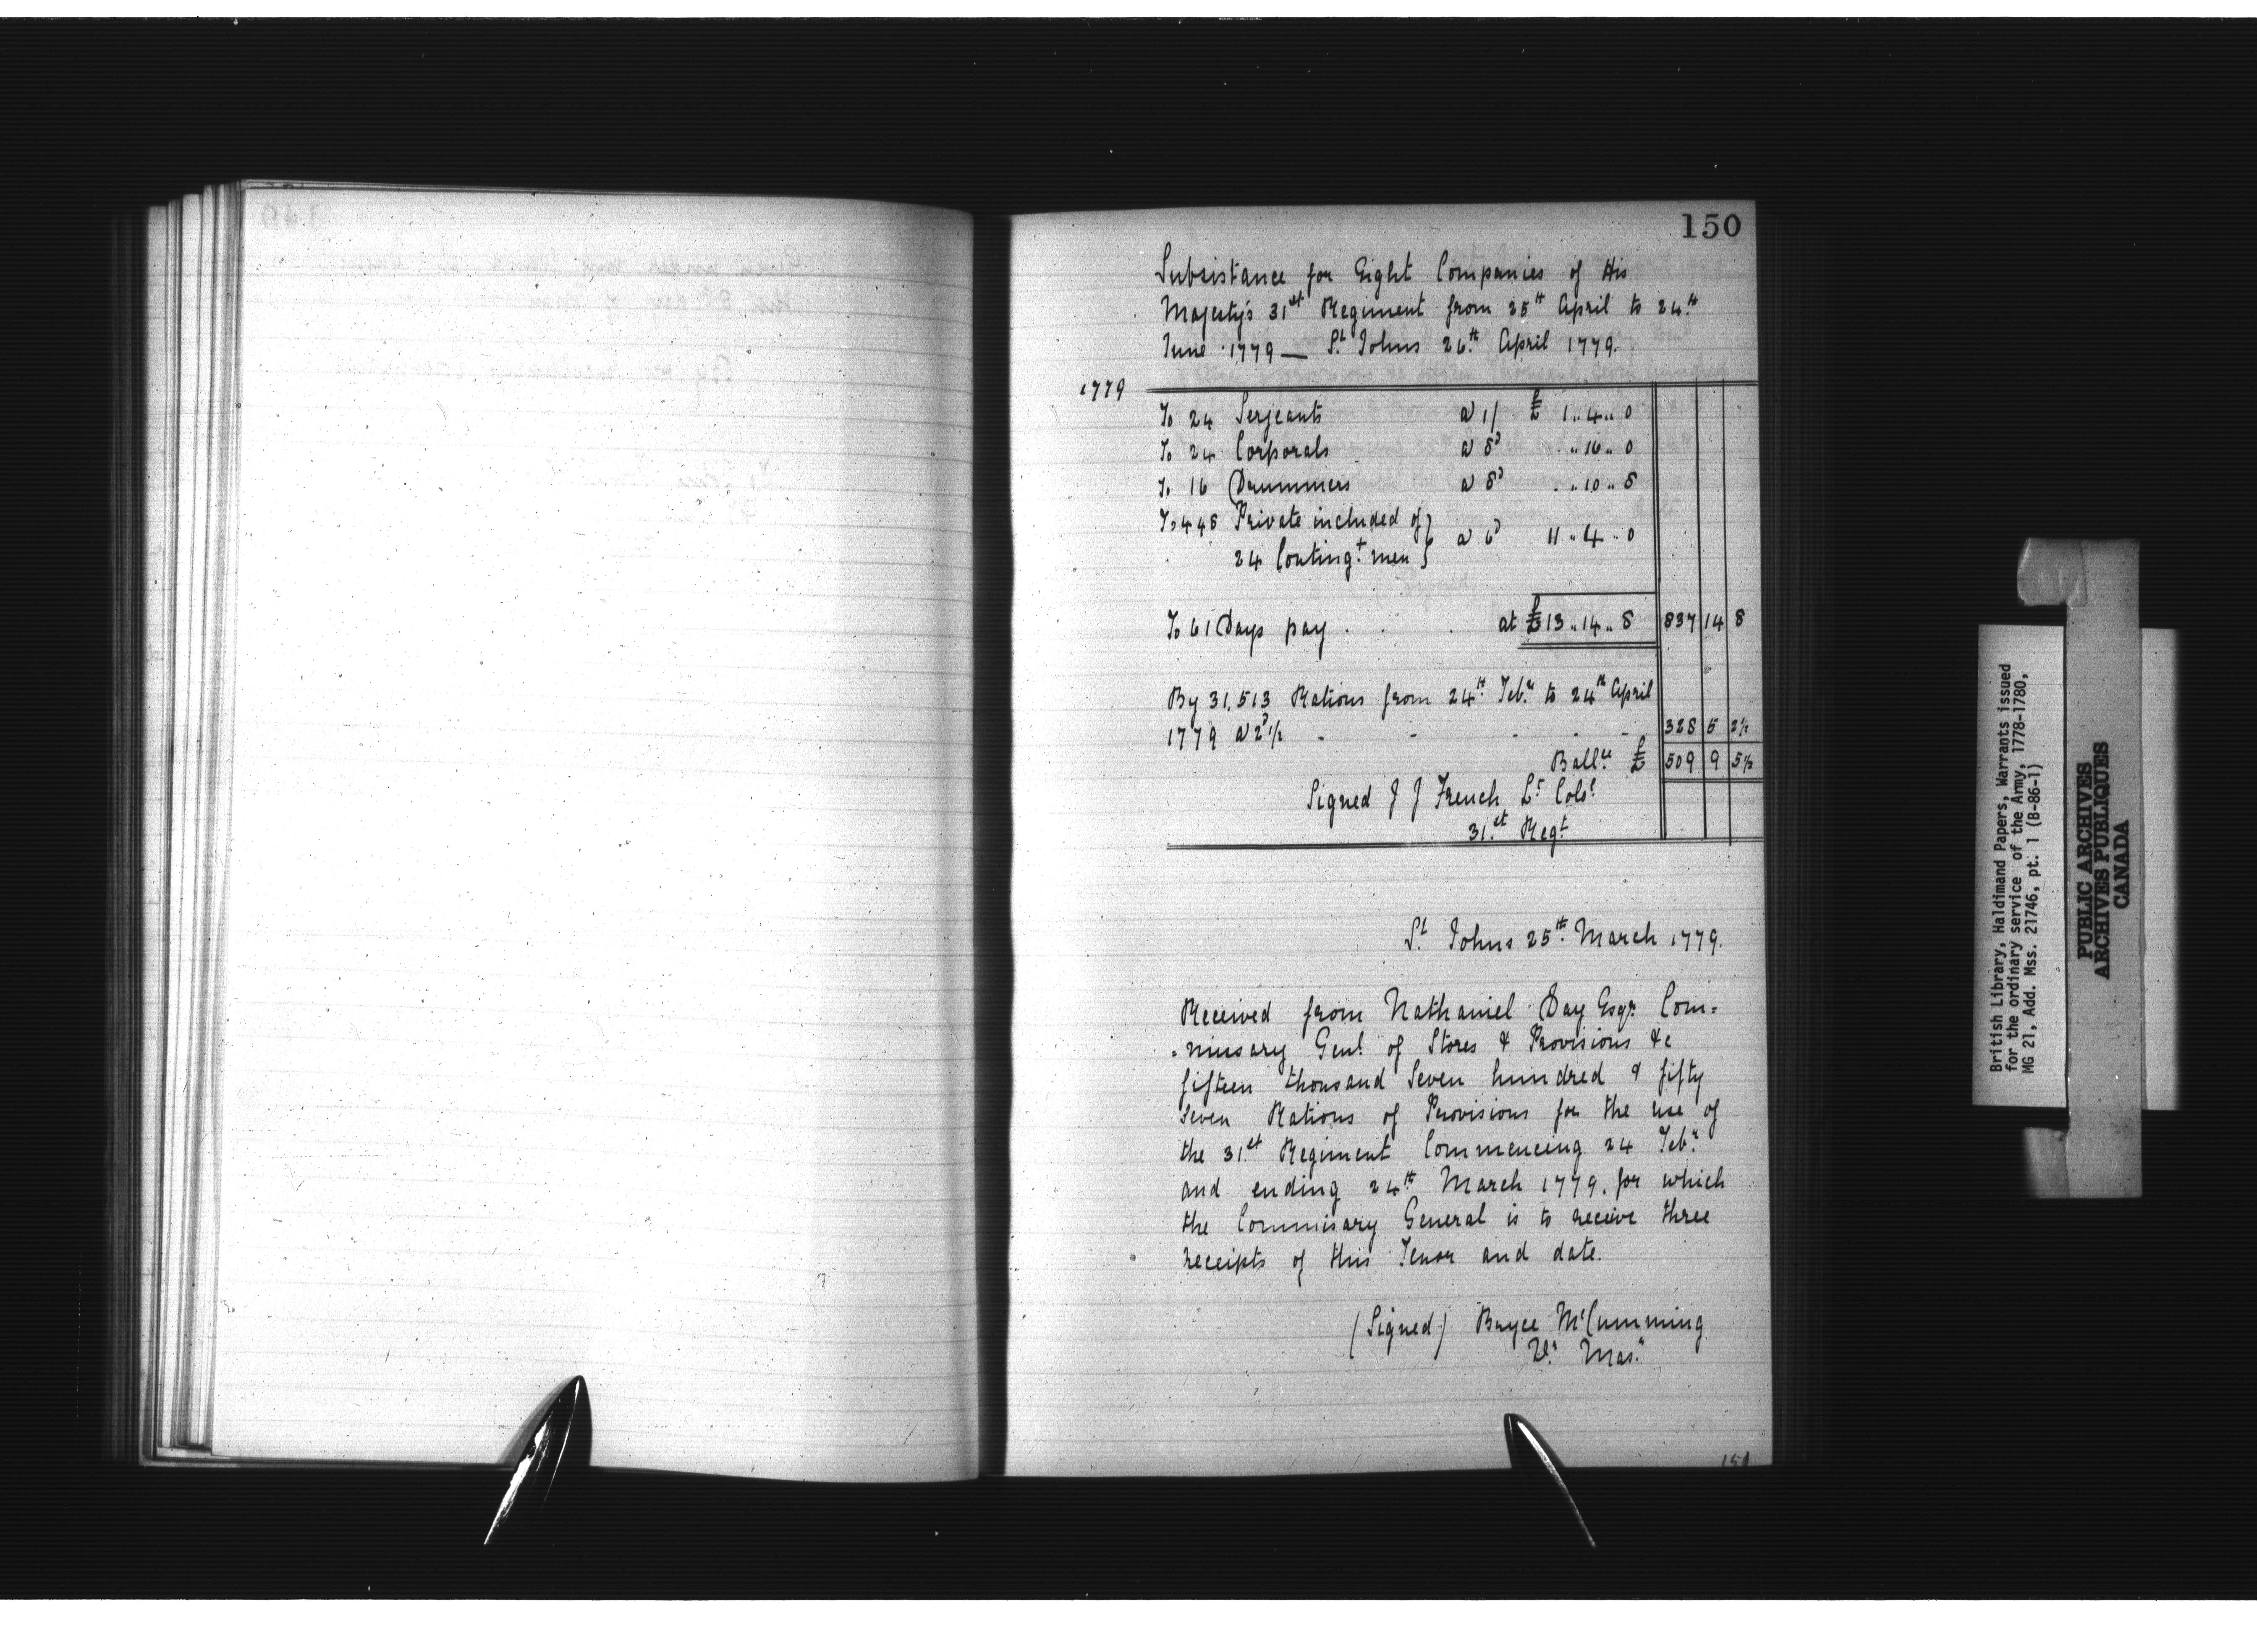 150
Subsistance for Eight Companies of His
Majesty's 31st Regiment from 25th April to 24th
June 1779 — St Johns 26th April 1779.
1779
To 24 Serjeants a 1/ £ 1 „ 4 „ 0
To 24 Corporals a 8d „ 16 „ 0
To 16 Drummers a 8d „ 10 „ 8
To 448 Private included of } a 6d 11 „ 4 „ 0
24 Contingt men }
To 61 Days pay . . . at £13 „ 14 „ 8 837 14 8
By 31,513 Rations from 24th Febr to 24th April
1779 a 2d 1/2 - - - - 328 5 2½
Balle £ 509 9 5½
Signed J J French Lt Colol
31st Regt
St Johns 25th March 1779.
Received from Nathaniel Day Esqr Com=
=missary Genl of Stores & Provisions &c
fifteen thousand Seven hundred & fifty
seven Rations of Provisions for the use of
the 31st Regiment Commencing 24 Febr
and ending 24th March 1779. for which
the Commissary General is to receive three
receipts of this Tenor and date.
(Signed) Bryce McCumming
Qr Masr
151
British Library, Haldimand Papers, Warrants issued
for the ordinary service of the Army, 1778-1780,
MG 21, Add. Mss. 21746, pt. 1 (B-86-1)
PUBLIC ARCHIVES
ARCHIVES PUBLIQUES
CANADA